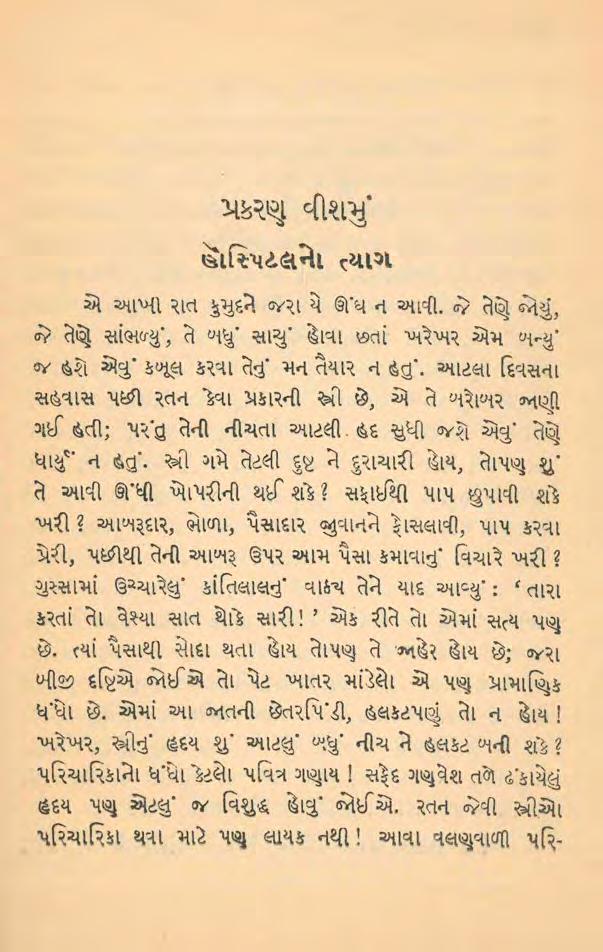 પ્રકરણ વીશમું
હૉસ્પિટલનો ત્યાગ
એ આખી રાત કુમુદને જરા યે ઊંઘ ન આવી. જે તેણે જોયું,
જે તેણે સાંભળ્યું, તે બધું સાચું હોવા છતાં ખરેખર એમ બન્યું
જ હશે એવું કબૂલ કરવા તેનું મન તૈયાર ન હતું. આટલા દિવસના
સહવાસ પછી રતન કેવા પ્રકારની સ્ત્રી છે, એ તે બરોબર જાણી
ગઈ હતી; પરંતુ તેની નીચતા આટલી હદ સુધી જશે એવું તેણે
ધાર્યું ન હતું. સ્ત્રી ગમે તેટલી દુષ્ટ ને દુરાચારી હોય, તોપણ શું
તે આવી ઊંધી ખોપરીની થઈ શકે? સફાઈથી પાપ છુપાવી શકે
ખરી? આબરૂદાર, ભોળા, પૈસાદાર જુવાનને ફોસલાવી, પાપ કરવા
પ્રેરી, પછીથી તેની આબરૂ ઉપર આમ પૈસા કમાવાનું વિચારે ખરી?
ગુસ્સામાં ઉચ્ચારેલું કાંતિલાલનું વાક્ય તેને યાદ આવ્યું: ‘તારા
કરતાં તો વેશ્યા સાત થોકે સારી!’ એક રીતે તો એમાં સત્ય પણ
છે. ત્યાં પૈસાથી સોદા થતા હોય તોપણ તે જાહેર હોય છે; જરા
બીજી દૃષ્ટિએ જોઈએ તો પેટ ખાતર માંડેલો એ પણ પ્રામાણિક
ધંધો છે. એમાં આ જાતની છેતરપિંડી, હલકટપણું તો ન હોય!
ખરેખર, સ્ત્રીનું હૃદય શું આટલું બધું નીચ ને હલકટ બની શકે?
પરિચારિકાનો ધંધો કેટલો પવિત્ર ગણાય! સફેદ ગણવેશ તળે ઢંકાયેલું
હૃદય પણ એટલું જ વિશુદ્ધ હોવું જોઈએ. રતન જેવી સ્ત્રીઓ
પરિચારિકા થવા માટે પણ લાયક નથી! આવા વલણવાળી પરિ-